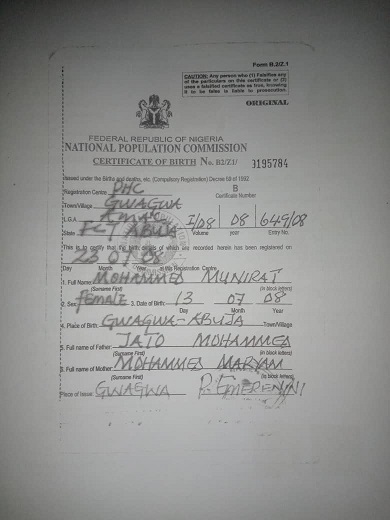 Form B.2/Z.1
CAUTION: Any person who (1) Falsifies any
of the particulars on this certificate or (2)
uses a falsified certificate as true, knowing
it to be false is liable to prosecution.
ORIGINAL
FEDERAL REPUBLIC OF NIGERIA
NATIONAL POPULATION COMMISSION
CERTIFICATE OF BIRTH No. B2/Z1/ 3195784
Issued under the Births and deaths, etc. (Compulsory Registration) Decree 69 of 1992
Registration Centre PHC B
Certificate Number
Town/Village GWAGWA
L.G.A. AMAC I/08 08 649/08
State FCT ABUJA Volume year Entry No.
This is to certify that the birth details of which are recorded herein has been registered on
23 07 08
Day Month Year at this Registration Centre
1. Full Name MOHAMMED MUNIRAT
(Surname First) (in block letters)
2. Sex female 3. Date of Birth: 13 07 08
Day Month Year
4. Place of Birth GWAGWA-ABUJA Town/Village
5. Full name of Father: JATO MOHAMMED
(Surname First) (in block letters)
6. Full name of Mother: MOHAMMED MARYAM
(Surname First) (in block letters)
Place of Issue: GWAGWA